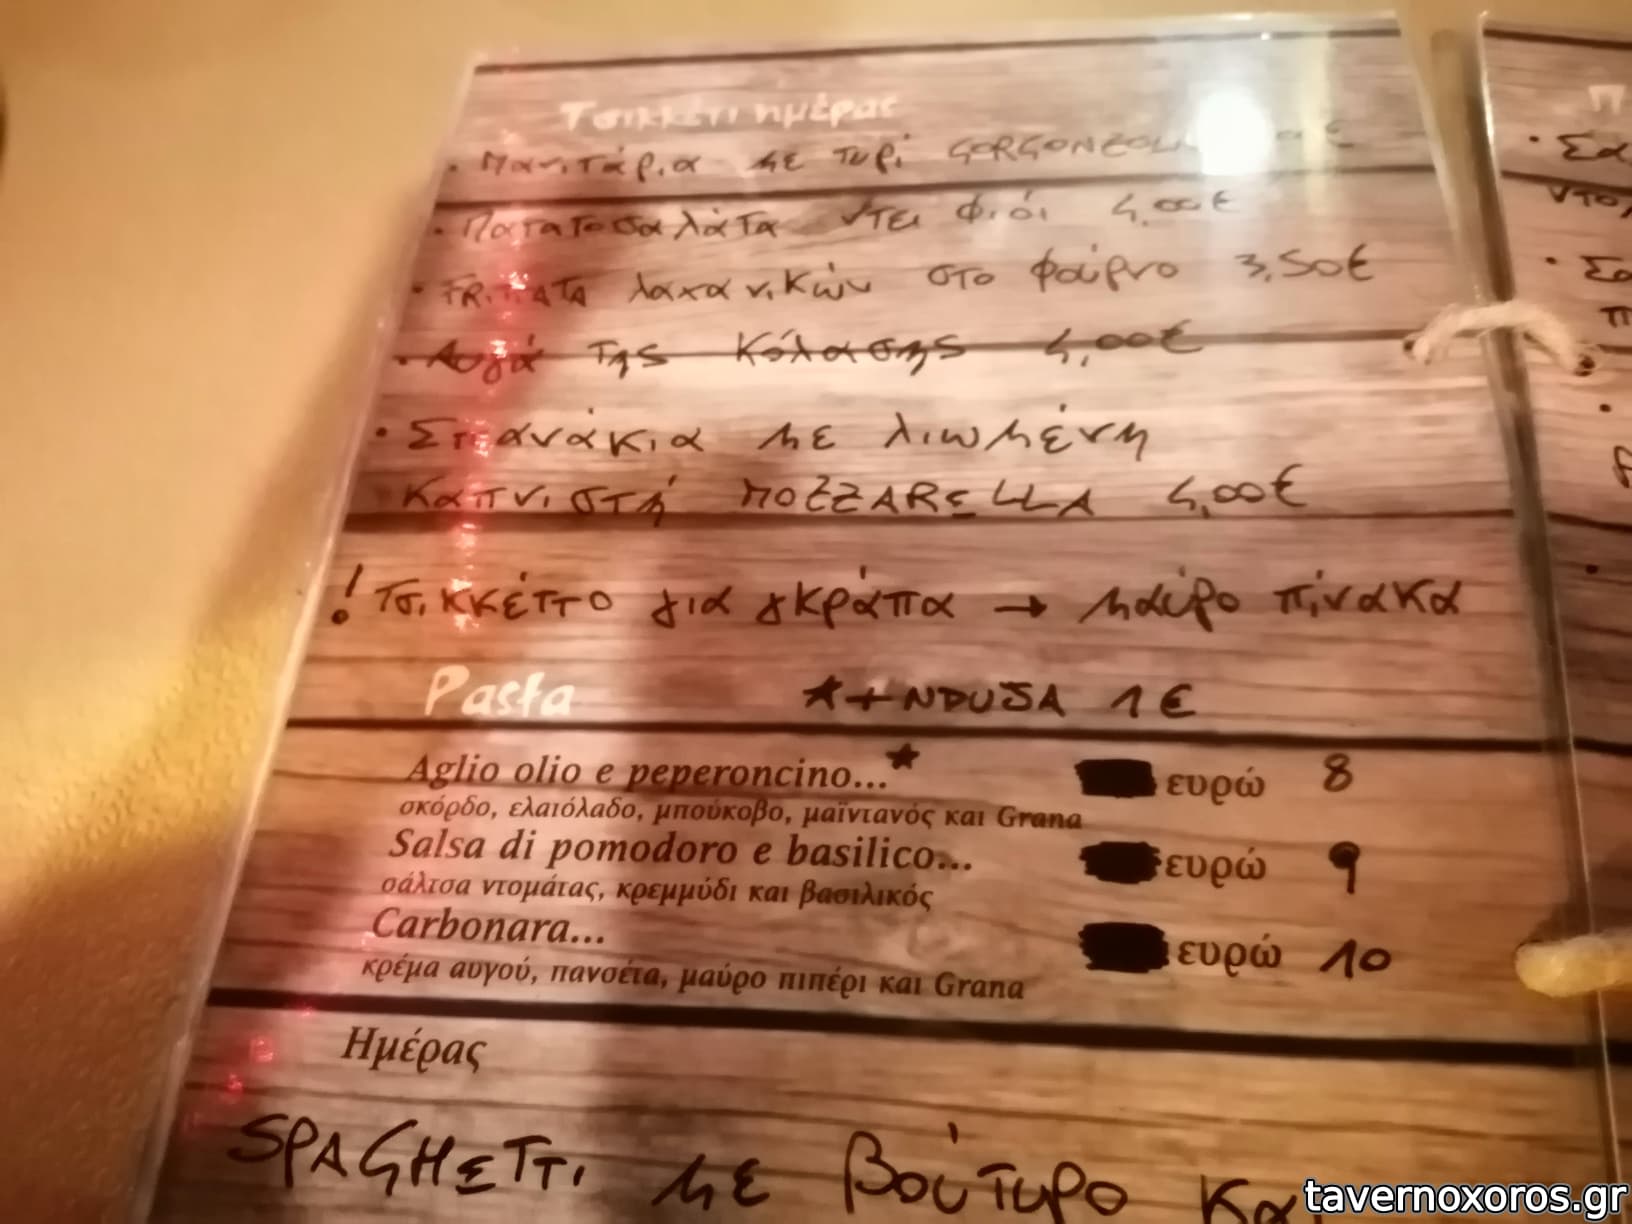 Τσικκέτι ημέρας
• Μανιτάρια με τυρί GORGONZOLA
• Πατατοσαλάτα ντει φιόι 4,00€
• FRITTATA λαχανικών στο φούρνο 3,50€
• Αυγά της Κόλασης 4,00€
• Σπανάκια με λιωμένη
καπνιστή MOZZARELLA 4,00€
! Τσικκέττο για γκράπα → μαύρο πίνακα
Pasta ★+NDUJA 1€
Aglio olio e peperoncino...★ ευρώ 8
σκόρδο, ελαιόλαδο, μπούκοβο, μαϊντανός και Grana
Salsa di pomodoro e basilico... ευρώ 9
σάλτσα ντομάτας, κρεμμύδι και βασιλικός
Carbonara... ευρώ 10
κρέμα αυγού, πανσέτα, μαύρο πιπέρι και Grana
Ημέρας
SPAGHETTI με βούτυρο και
tavernoxoros.gr